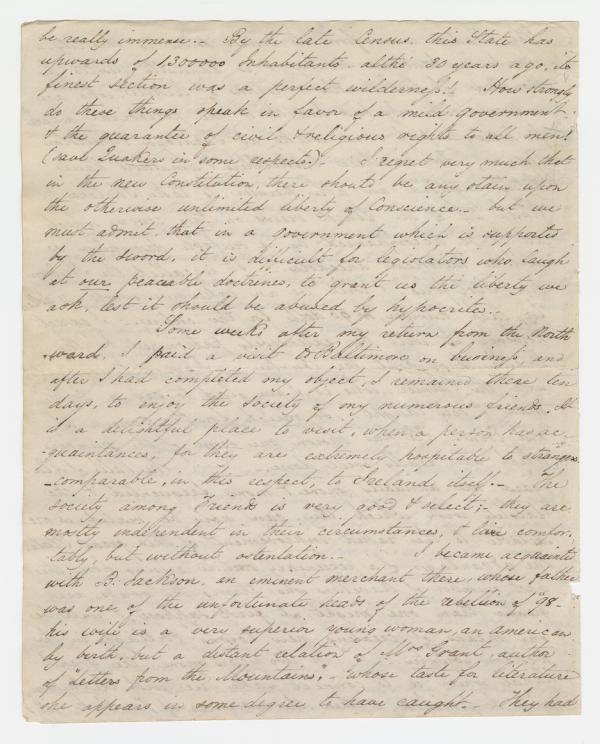 be really immense.- By the late Census, this State has
upwards of 1300000 Inhabitants, altho' 30 years ago, its
finest section was a perfect wilderness! How strongly
do these things speak in favor of a mild government
& the guarantee of civil & religious rights to all men!
(save Quakers in some respects). I regret very much that
in the new Constitution, there should be any stain upon
the otherwise unlimited liberty of Conscience - but we
must admit, that in a government which is supported
by the sword, it is difficult for legislators who laugh
at our peaceable doctrines, to grant us the liberty we
ask, lest it should be abused by hypocrites.
Some weeks after my return from the North
-ward, I paid a visit to Baltimore on business, and
after I had completed my object, I remained there ten
days, to enjoy the society of my numerous friends. It
is a delightful place to visit, when a person has ac-
-quaintances, for they are extremely hospitable to strangers
-comparable, in this respect, to Ireland itself.- The
society among Friends is very good & select;- they are
mostly independent in their circumstances, & live comfor-
tably, but without ostentation.- I became acquainted
with B. Jackson, an eminent merchant there, whose father
was one of the unfortunate heads of the rebellion of "98-
his wife is a very superior young woman, an american
by birth, but a distant relation of Mrs Grant, author
of "Letters from the Mountains",- whose taste for literature
she appears in some degree to have caught.- They had